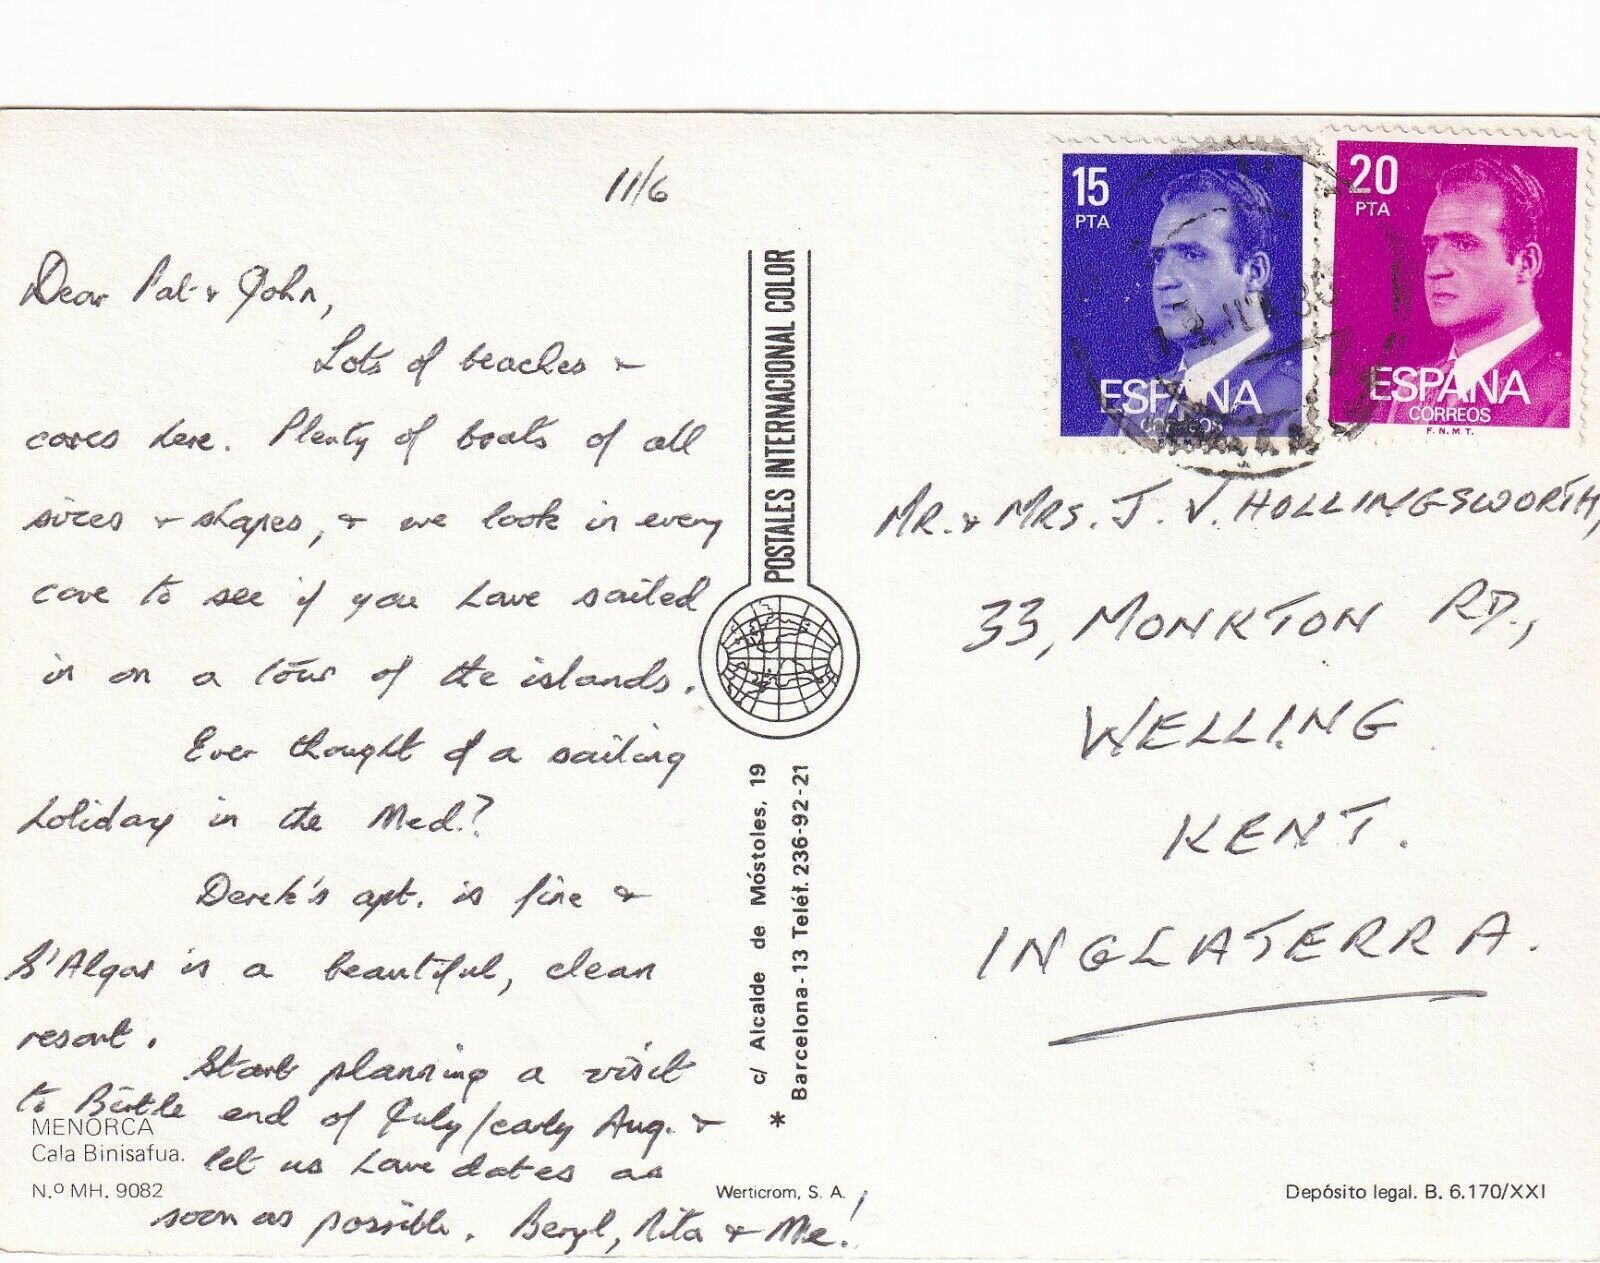 11/6
Dear Pat & John,
Lots of beaches &
coves here. Plenty of boats of all
sizes & shapes, & we look in every
cove to see if you have sailed
in on a tour of the islands.
Ever thought of a sailing
holiday in the Med.?
Derek's apt. is fine &
S'Algar is a beautiful, clean
resort.
Start planning a visit
to Birtle end of July/early Aug. &
let us have dates as
soon as possible. Beryl, Rita & Me!
MENORCA
Cala Binisafua.
N.º MH. 9082
POSTALES INTERNACIONAL COLOR
c/ Alcalde de Móstoles, 19
Barcelona-13 Teléf. 236-92-21
*
Werticrom, S. A.
15
PTA
ESPAÑA
CORREOS
F.N.M.T.
20
PTA
ESPAÑA
CORREOS
F.N.M.T.
MR. & MRS. J. V. HOLLINGSWORTH,
33, MONKTON RD.,
WELLING
KENT.
INGLATERRA.
Depósito legal. B. 6.170/XXI